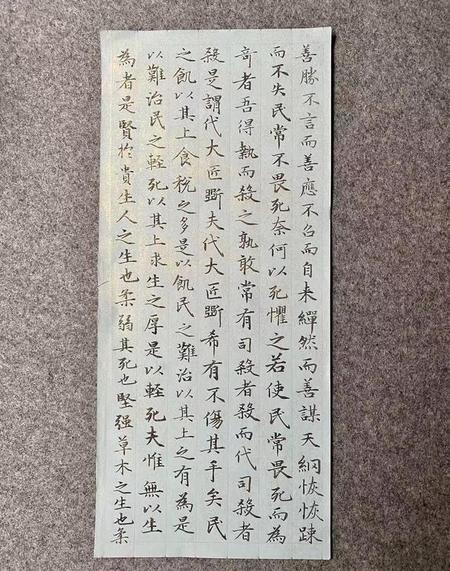 善勝不言而善應不召而自来繟然而善謀天網恢恢踈
而不失民常不畏死奈何以死懼之若使民常畏死而為
奇者吾得執而殺之孰敢常有司殺者殺而代司殺者
殺是謂代大匠斲夫代大匠斲希有不傷其手矣民
之飢以其上食稅之多是以飢民之難治以其上之有為是
以難治民之輕死以其上求生之厚是以輕死夫惟無以生
為者是賢於貴生人之生也柔弱其死也堅强草木之生也柔